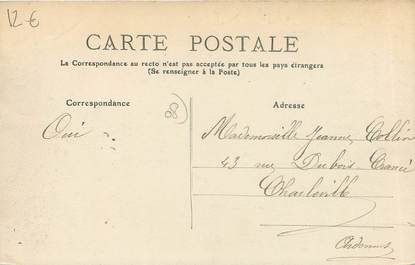 12 €
CARTE POSTALE
La Correspondance au recto n'est pas acceptée par tous les pays étrangers
(Se renseigner à la Poste)
Correspondance
Adresse
98
Oui
Mademoiselle Jeanne Collin
43 rue Dubois-Crancé
Charleville
Ardennes